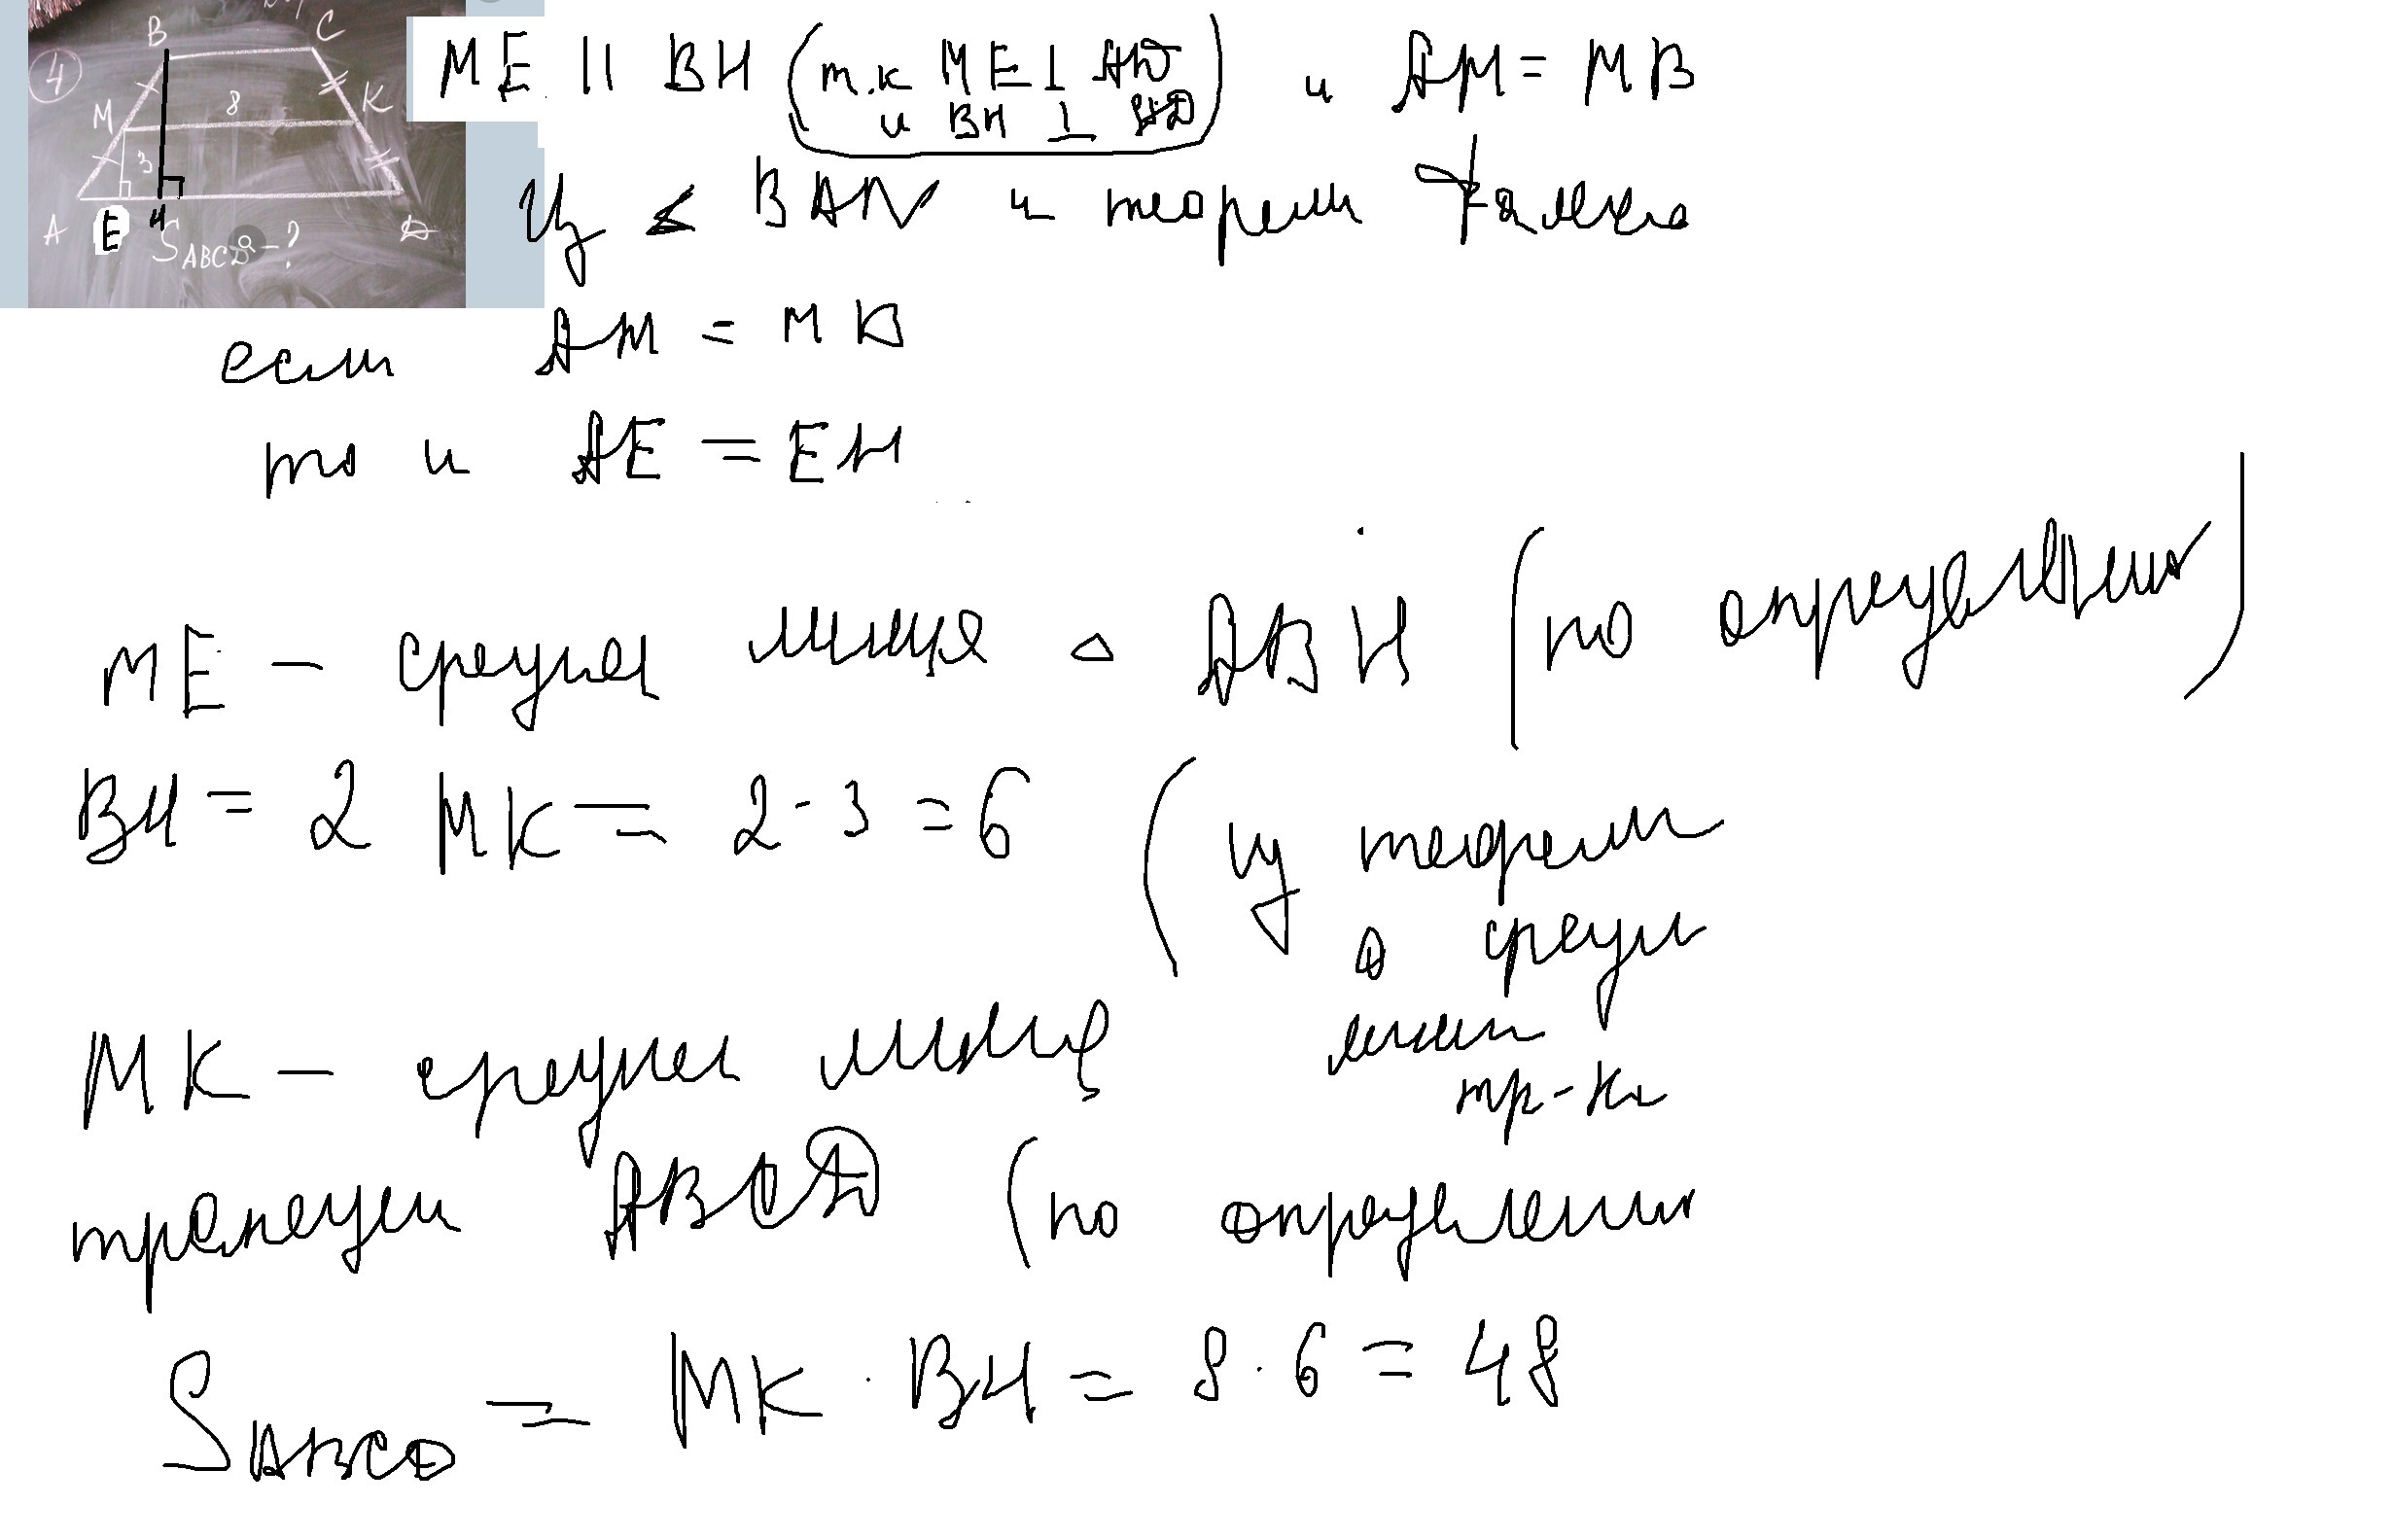 4
B
C
M
8
K
3
A
E
H
D
S ABCD - ?
ME || BH (т.к ME ⊥ AD и BH ⊥ AD) и AM = MB
Из ∠ BAH и теоремы Фалеса
если AM = MB
то и AE = EH
ME - средняя линия △ ABH (по определению)
BH = 2 MK = 2 · 3 = 6 (из теоремы
о средн
линии
тр-ка
MK - средняя линия
трапеции ABCD (по определению
S ABCD = MK · BH = 8 · 6 = 48